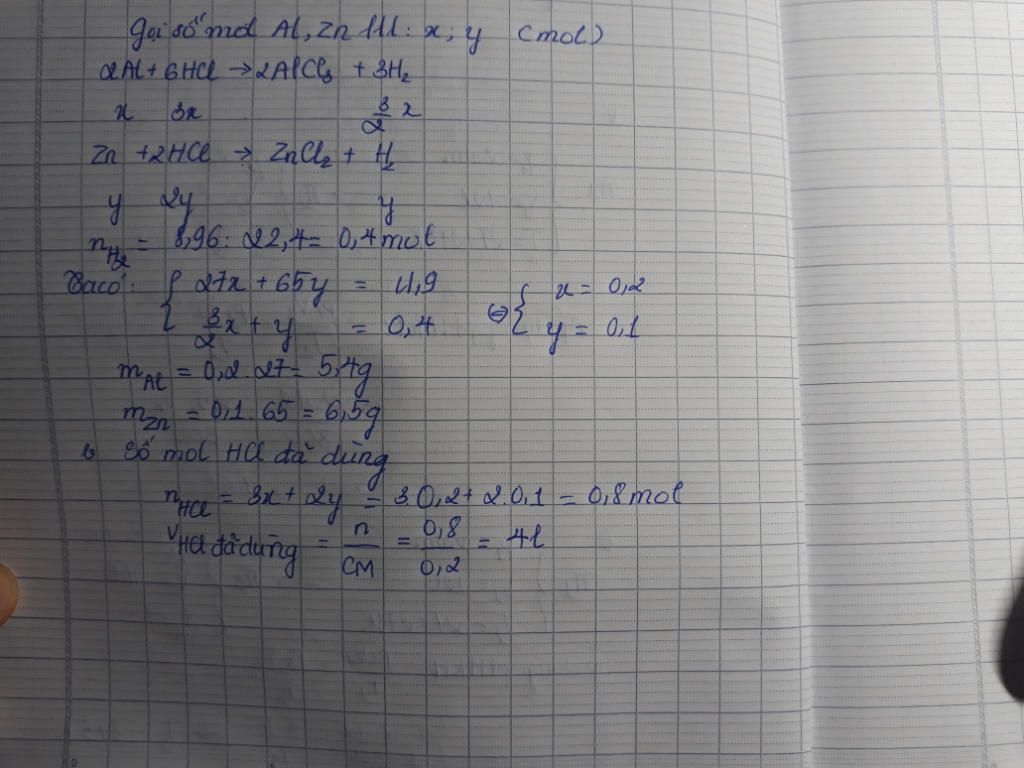 Gọi số mol Al, Zn lll: x; y (mol)
2Al + 6HCl → 2AlCl3 + 3H2
x 3x 3/2 x
Zn + 2HCl → ZnCl2 + H2
y 2y y
nH2 = 8,96 : 22,4 = 0,4 mol
Ta có: { 27x + 65y = 11,9 ⇔ { x = 0,2
3/2 x + y = 0,4 y = 0,1
mAl = 0,2 . 27 = 5,4g
mZn = 0,1 . 65 = 6,5g
b Số mol HCl đã dùng
nHCl = 3x + 2y = 3.0,2 + 2.0,1 = 0,8 mol
VHCl đã dùng = n/CM = 0,8/0,2 = 4l